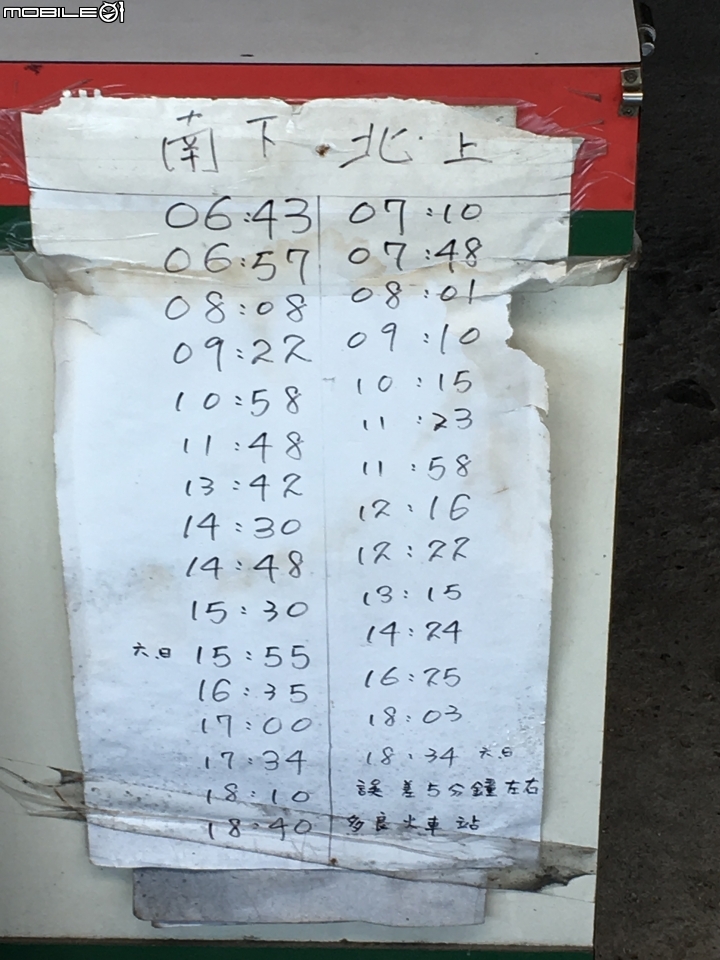 MOBILE01
南下 北上
06:43 07:10
06:57 07:48
08:08 08:01
09:22 09:10
10:58 10:15
11:48 11:23
13:42 11:58
14:30 12:16
14:48 12:22
15:30 13:15
六.日 15:55 14:24
16:35 16:25
17:00 18:03
17:34 18:34 六.日
18:10 誤差5分鐘左右
18:40 多良火車站